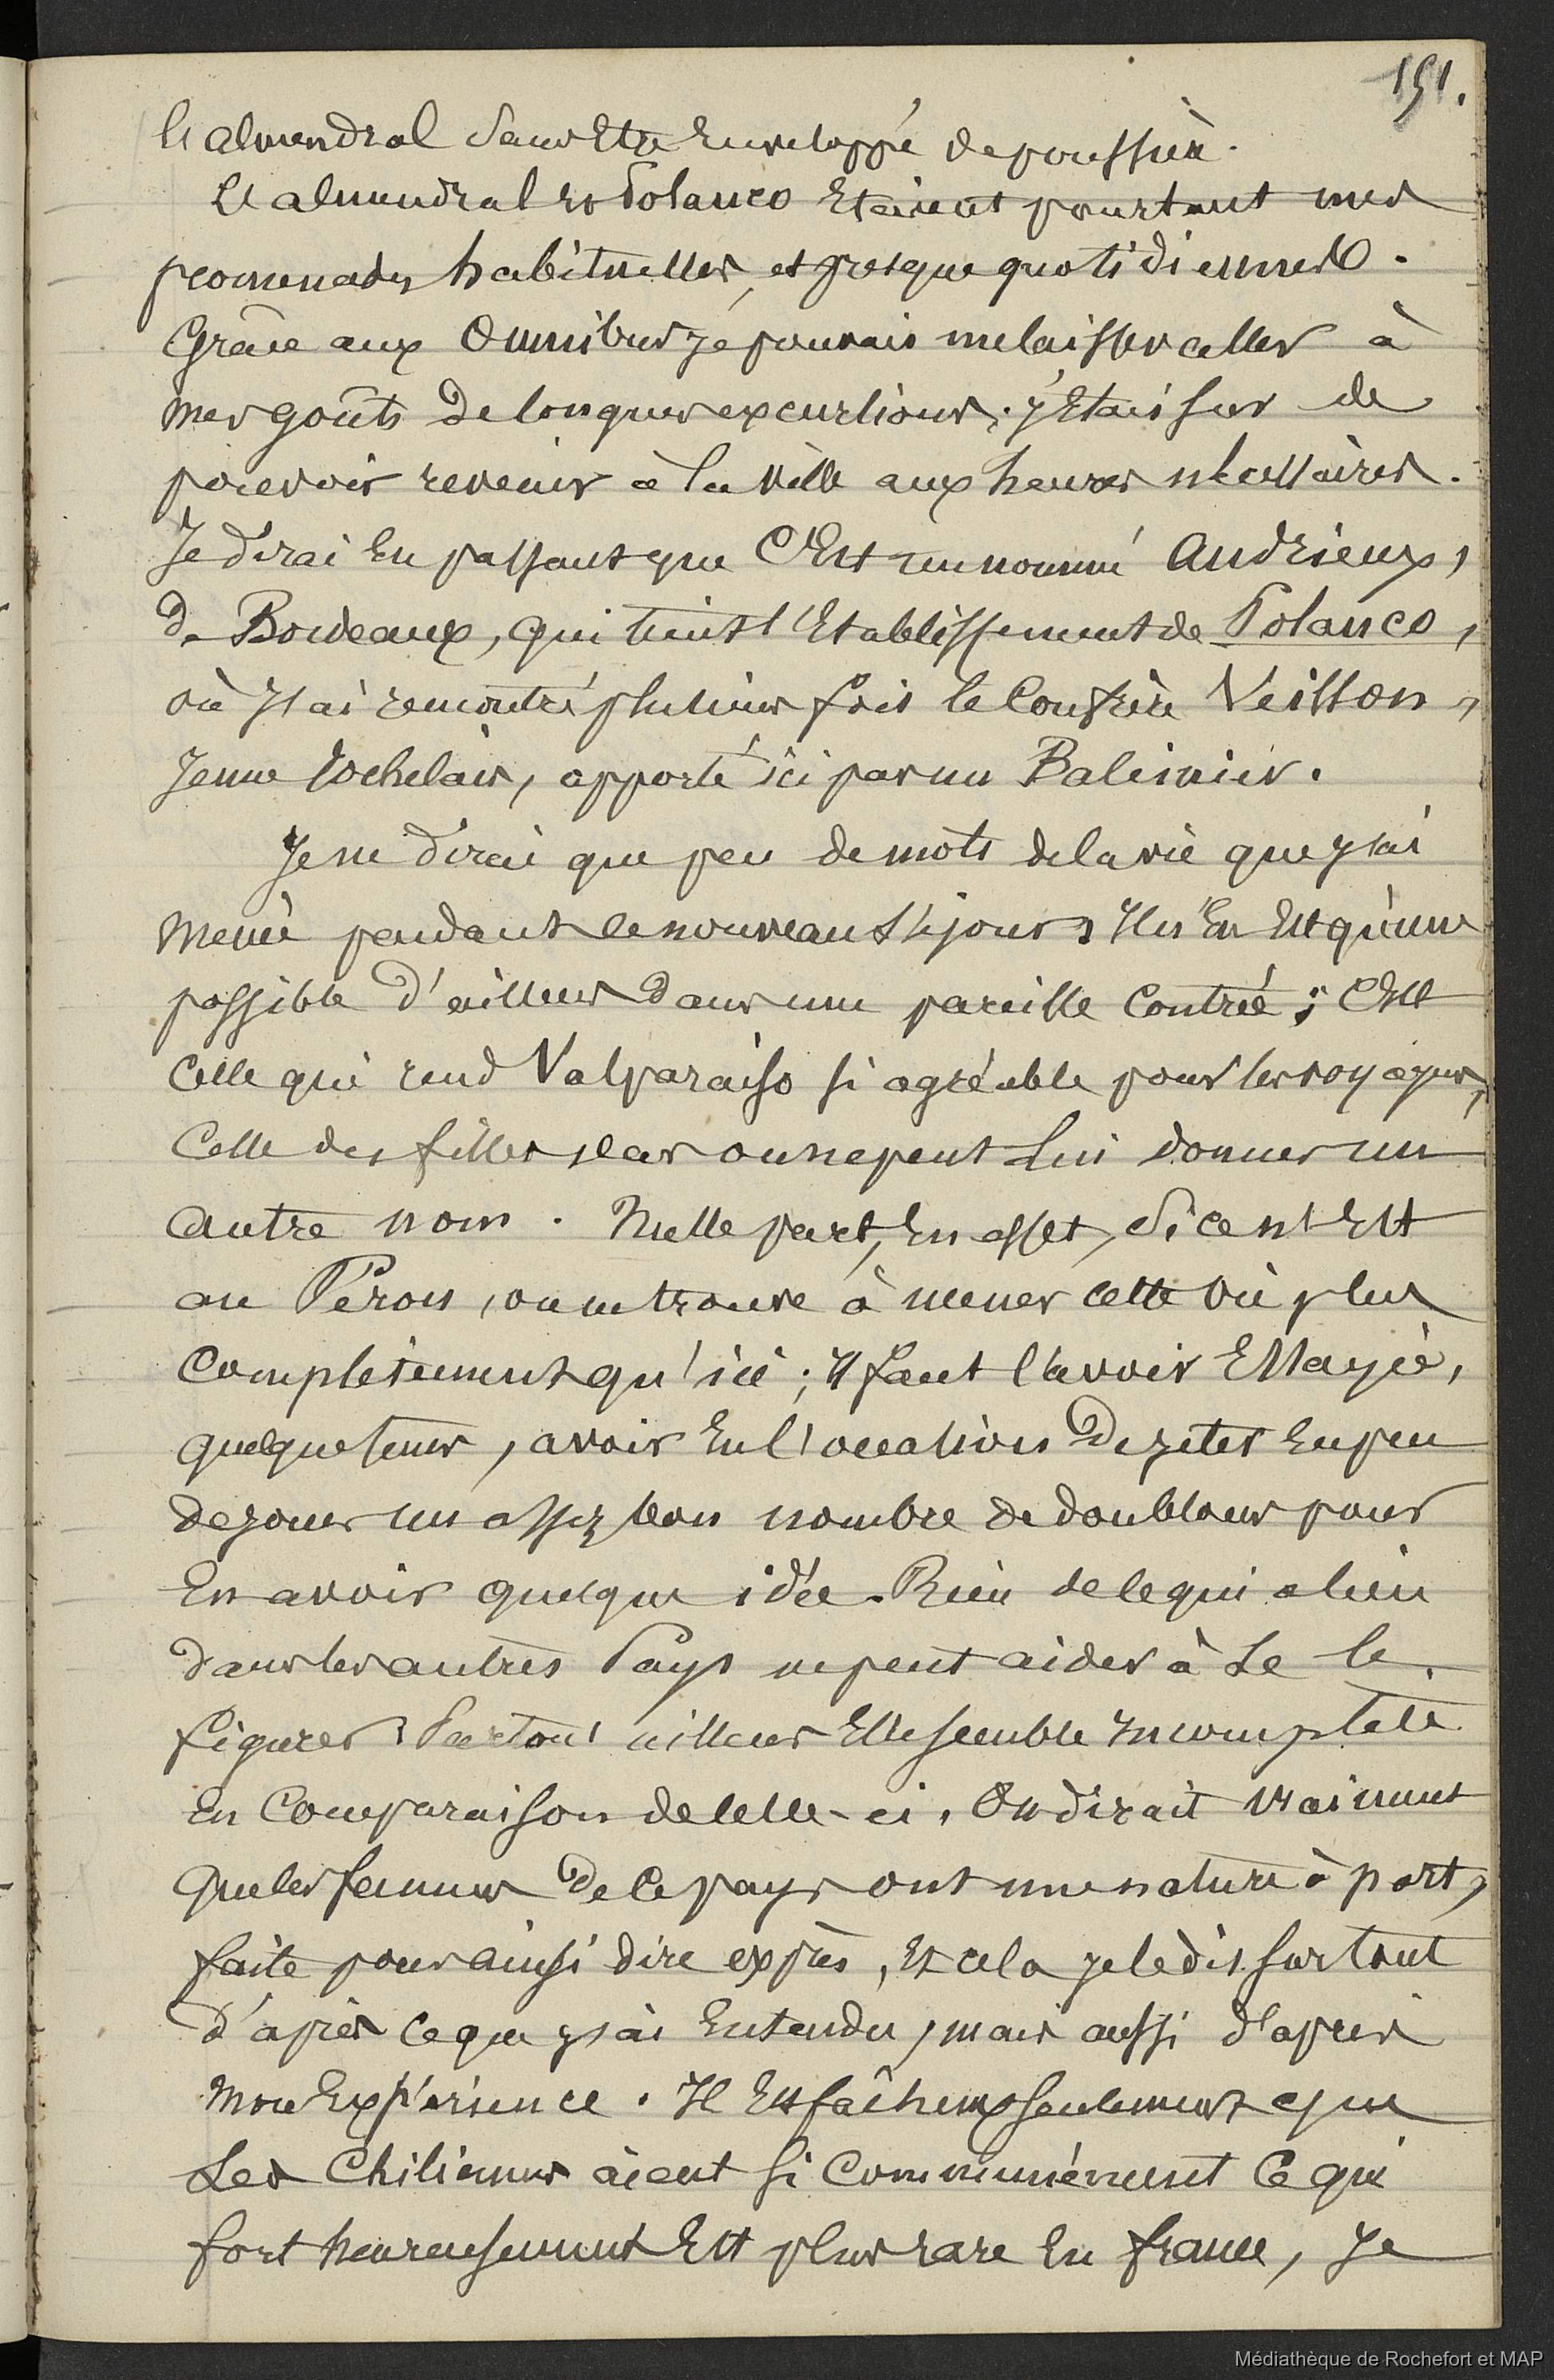 191.
l'almendral sans etre Enveloppé de poussière.
L'almendral et Polanco Etaient pourtant mes
promenades habituelles, et presque quotidiennes.
Grâce aux Omnibus je pouvais me laisser aller à
mes goûts de longues excursions; j'Etais sur de
pouvoir revenir à la ville aux heures nécessaires.
Je dirai En passant que C'Est un nommé Andrieux,
de Bordeaux, qui tient l'Etablissement de Polanco,
où j'ai rencontré plusieurs fois le Confrère Veillon,
jeune rochelais, apporté ici par un Baleinier.
Je ne dirai que peu de mots de la vie que j'ai
Menée pendant ce nouveau séjour; Il n'En Est qu'une
possible d'ailleurs dans une pareille Contrée; C'Est
Celle qui rend Valparaiso si agréable pour les voyageurs,
Celle des filles, car on ne peut lui donner un
autre nom. Nulle part, En effet, Si ce n'Est
au Pérou, on ne trouve à mener cette vie plus
Complètement qu'ici; Il faut l'avoir Essayée,
quelque tems, avoir Eu l'occasion de jeter En peu
de jours un assez bon nombre de doublons pour
En avoir quelque idée. Rien de ce qui a lieu
dans les autres Pays ne peut aider à se le
figurer; Partout ailleurs Elle semble Incomplète
En Comparaison de celle-ci. On dirait vraiment
que les femmes de Ce pays ont une nature à part,
faite pour ainsi dire exprès, Et cela je le dis surtout
d'après ce que j'ai Entendu, mais aussi d'après
mon Expérience. Il Est fâcheux seulement que
Les Chiliennes aient si Communément Ce qui
fort heureusement Est plus rare En france, Je
Médiathèque de Rochefort et MAP